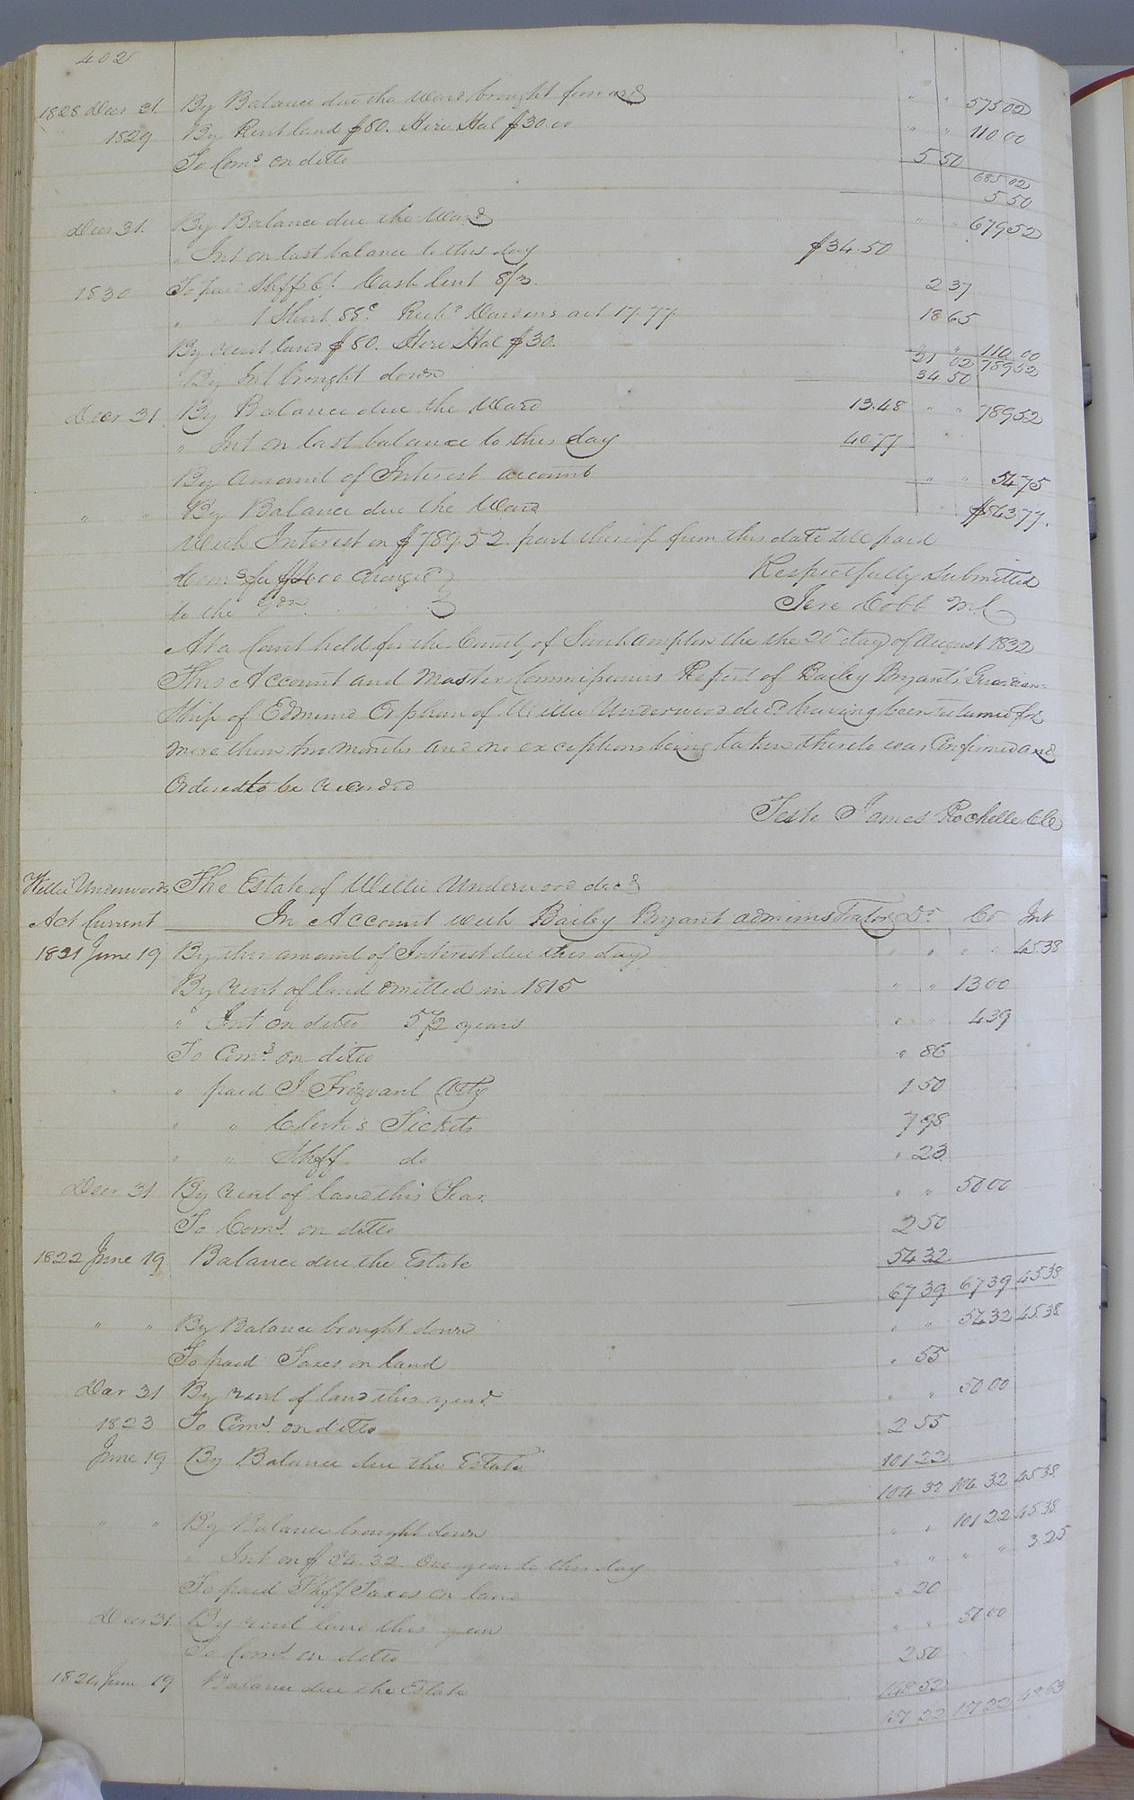 402
1828 Decr 31. By Balance due the Ward brought forward " " 575 02
1829 By Rent land $80. Hire Hal $30.00 " " 110 00
To Coms on ditto 5 50
685 02
5 50
Decr 31. By Balance due the Ward " " 679 52
" Int on last balance to this day $34.50
1830 To paid Shff 6/. Cash lent 8/3. 2 37
" 1 Shirt 88c Richd act 17.77 18 65
By rent land $80. Hire Hal $30. " " 110.00
21 02 789 52
By Int brought down 34 50
Decr 31 By Balance due the Ward 13.48 " " 789 52
" Int on last balance to this day 40.77
By amount of Interest account " " 54 75
" " By Balance due the Ward $843 77.
With Interest on $789.52 part thereof from this date till paid
Coms for charged Respectfully Submitted
to the Jere Cobb M C
At a Court held for the County of Southampton the the 20th day of August 1832
This Account and Master Commissioners Report of Bailey Bryant's Guardian
Ship of Edmund Orphan of Willie Underwood decd having been returned for
more than two months and no exceptions being taken thereto was Confirmed and
Ordered to be recorded
Teste James Rochelle Clk
Willie Underwoods The Estate of Willie Underwood decd
Act Current In Account with Bailey Bryant administrator Dr Cr Int
1821 June 19 By this amount of Interest due this day " " " " 45 38
By rent of land omitted in 1815 " " 13 00
" Int on ditto 5 1/2 years " " 4 39
To Coms on ditto " 86
" paid J Trezvant Atty 1 50
" " Clerk's Tickets 7 98
" " Shff do " 23
Decr 31 By rent of land this Year. " " 50 00
To Coms on ditto 2 50
1822 June 19 Balance due the Estate 54 32
67 39 67 39 45 38
" " By Balance brought down " " 54 32 45 38
To paid Taxes on land " 55
Dec 31 By rent of land this year " " 50 00
1823 To Coms on ditto 2 55
June 19 By Balance due the Estate 101 22
104 32 104 32 45 38
" " By Balance brought down " " 101 22 45 38
" Int on $54.32 One year to this day " " " " 3.25
To paid Shff Taxes on land " 20
Decr 31 By rent land this year " " 50 00
To Coms on ditto 2 50
1824 June 19 Balance due the Estate 148 52
151 22 151 22 48 63